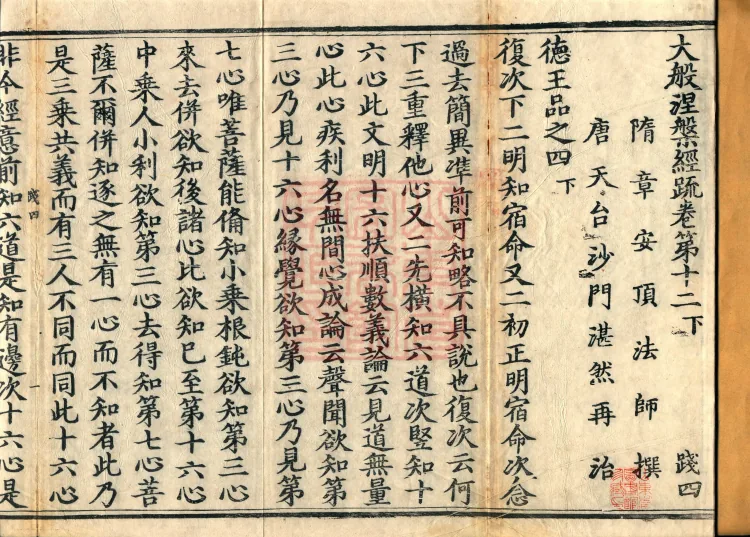 大般涅槃經疏卷第十二下 踐四
隋章安頂法師撰
唐天台沙門湛然再治
德王品之四下
復次下二明知宿命又二初正明宿命次念
過去簡異準前可知略不具說也復次云何
下三重釋他心又二先橫知六道次豎知十
六心此文明十六扶順數義論云見道無量
心此心疾利名無間心成論云聲聞欲知第
三心乃見十六心緣覺欲知第三心乃見第
七心唯菩薩能俻知小乗根鈍欲知第三心
來去併欲知後諸心比欲知巳至第十六心
中乗人小利欲知第三心去得知第七心菩
薩不爾併知逐之無有一心而不知者此乃
是三乗共義而有三人不同而同此十六心
踐四 一
非今經意前知六道是知有邊次十六心是